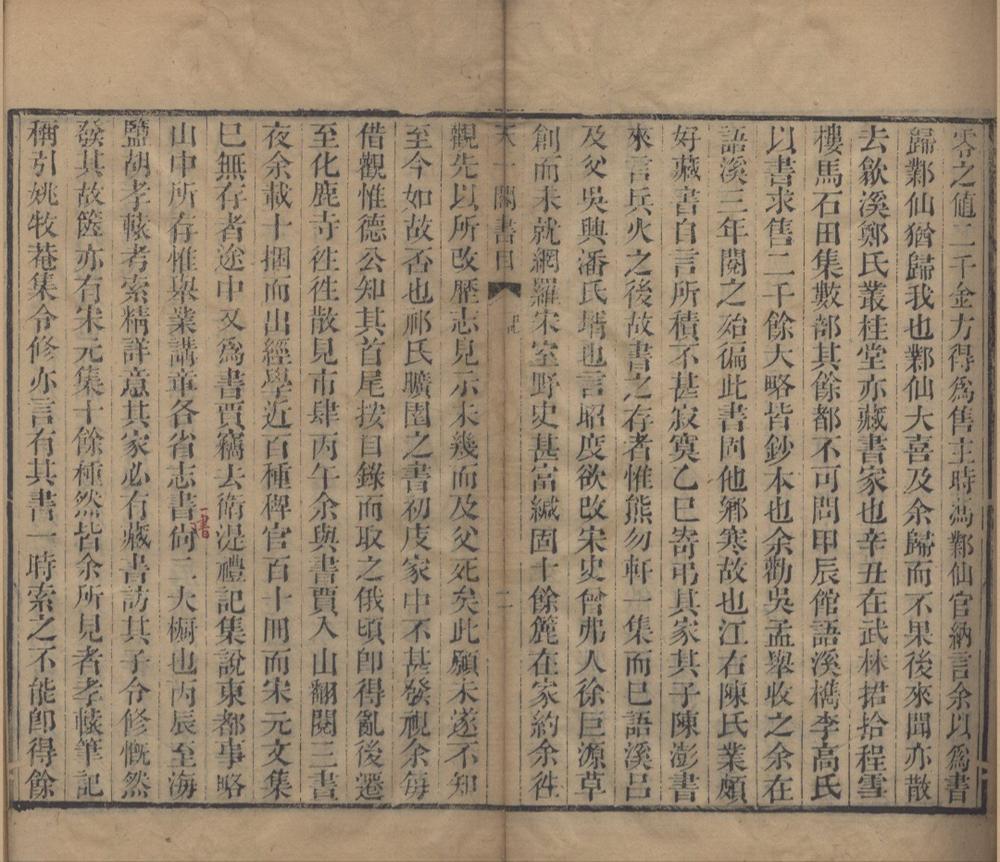 零之值二千金方得爲售主時馮鄴仙官納言余以爲書
歸鄴仙猶歸我也鄴仙大喜及余歸而不果後來聞亦散
去歙溪鄭氏叢桂堂亦藏書家也辛丑在武林捃拾程雪
樓馬石田集數部其餘都不可問甲辰館語溪檇李高氏
以書求售二千餘大略皆鈔本也余勸吳孟舉收之余在
語溪三年閱之殆徧此書固他鄉寒故也江右陳氏業頗
好藏書自言所積不甚寂寞乙巳寄弔其家其子陳澎書
來言兵火之後故書之存者惟熊勿軒一集而已語溪呂
及父吳興潘氏壻也言昭度欲改宋史曾弗人徐巨源草
創而未就網羅宋室野史甚富緘固十餘簏在家約余徃
天一閣書目
二
觀先以所改歷志見示未幾而及父死矣此願未遂不知
至今如故否也祁氏曠園之書初庋家中不甚發視余每
借觀惟德公知其首尾按目錄而取之俄頃卽得亂後遷
至化鹿寺徃徃散見市肆丙午余與書賈入山翻閱三晝
夜余載十捆而出經學近百種稗官百十冊而宋元文集
已無存者途中又爲書賈竊去衛湜禮記集說東都事略
山中所存惟舉業講章各省志書尙二大櫥也丙辰至海
一書
鹽胡孝轅考索精詳意其家必有藏書訪其子令修慨然
發其故篋亦有宋元集十餘種然皆余所見者孝轅筆記
稱引姚牧菴集令修亦言有其書一時索之不能卽得餘